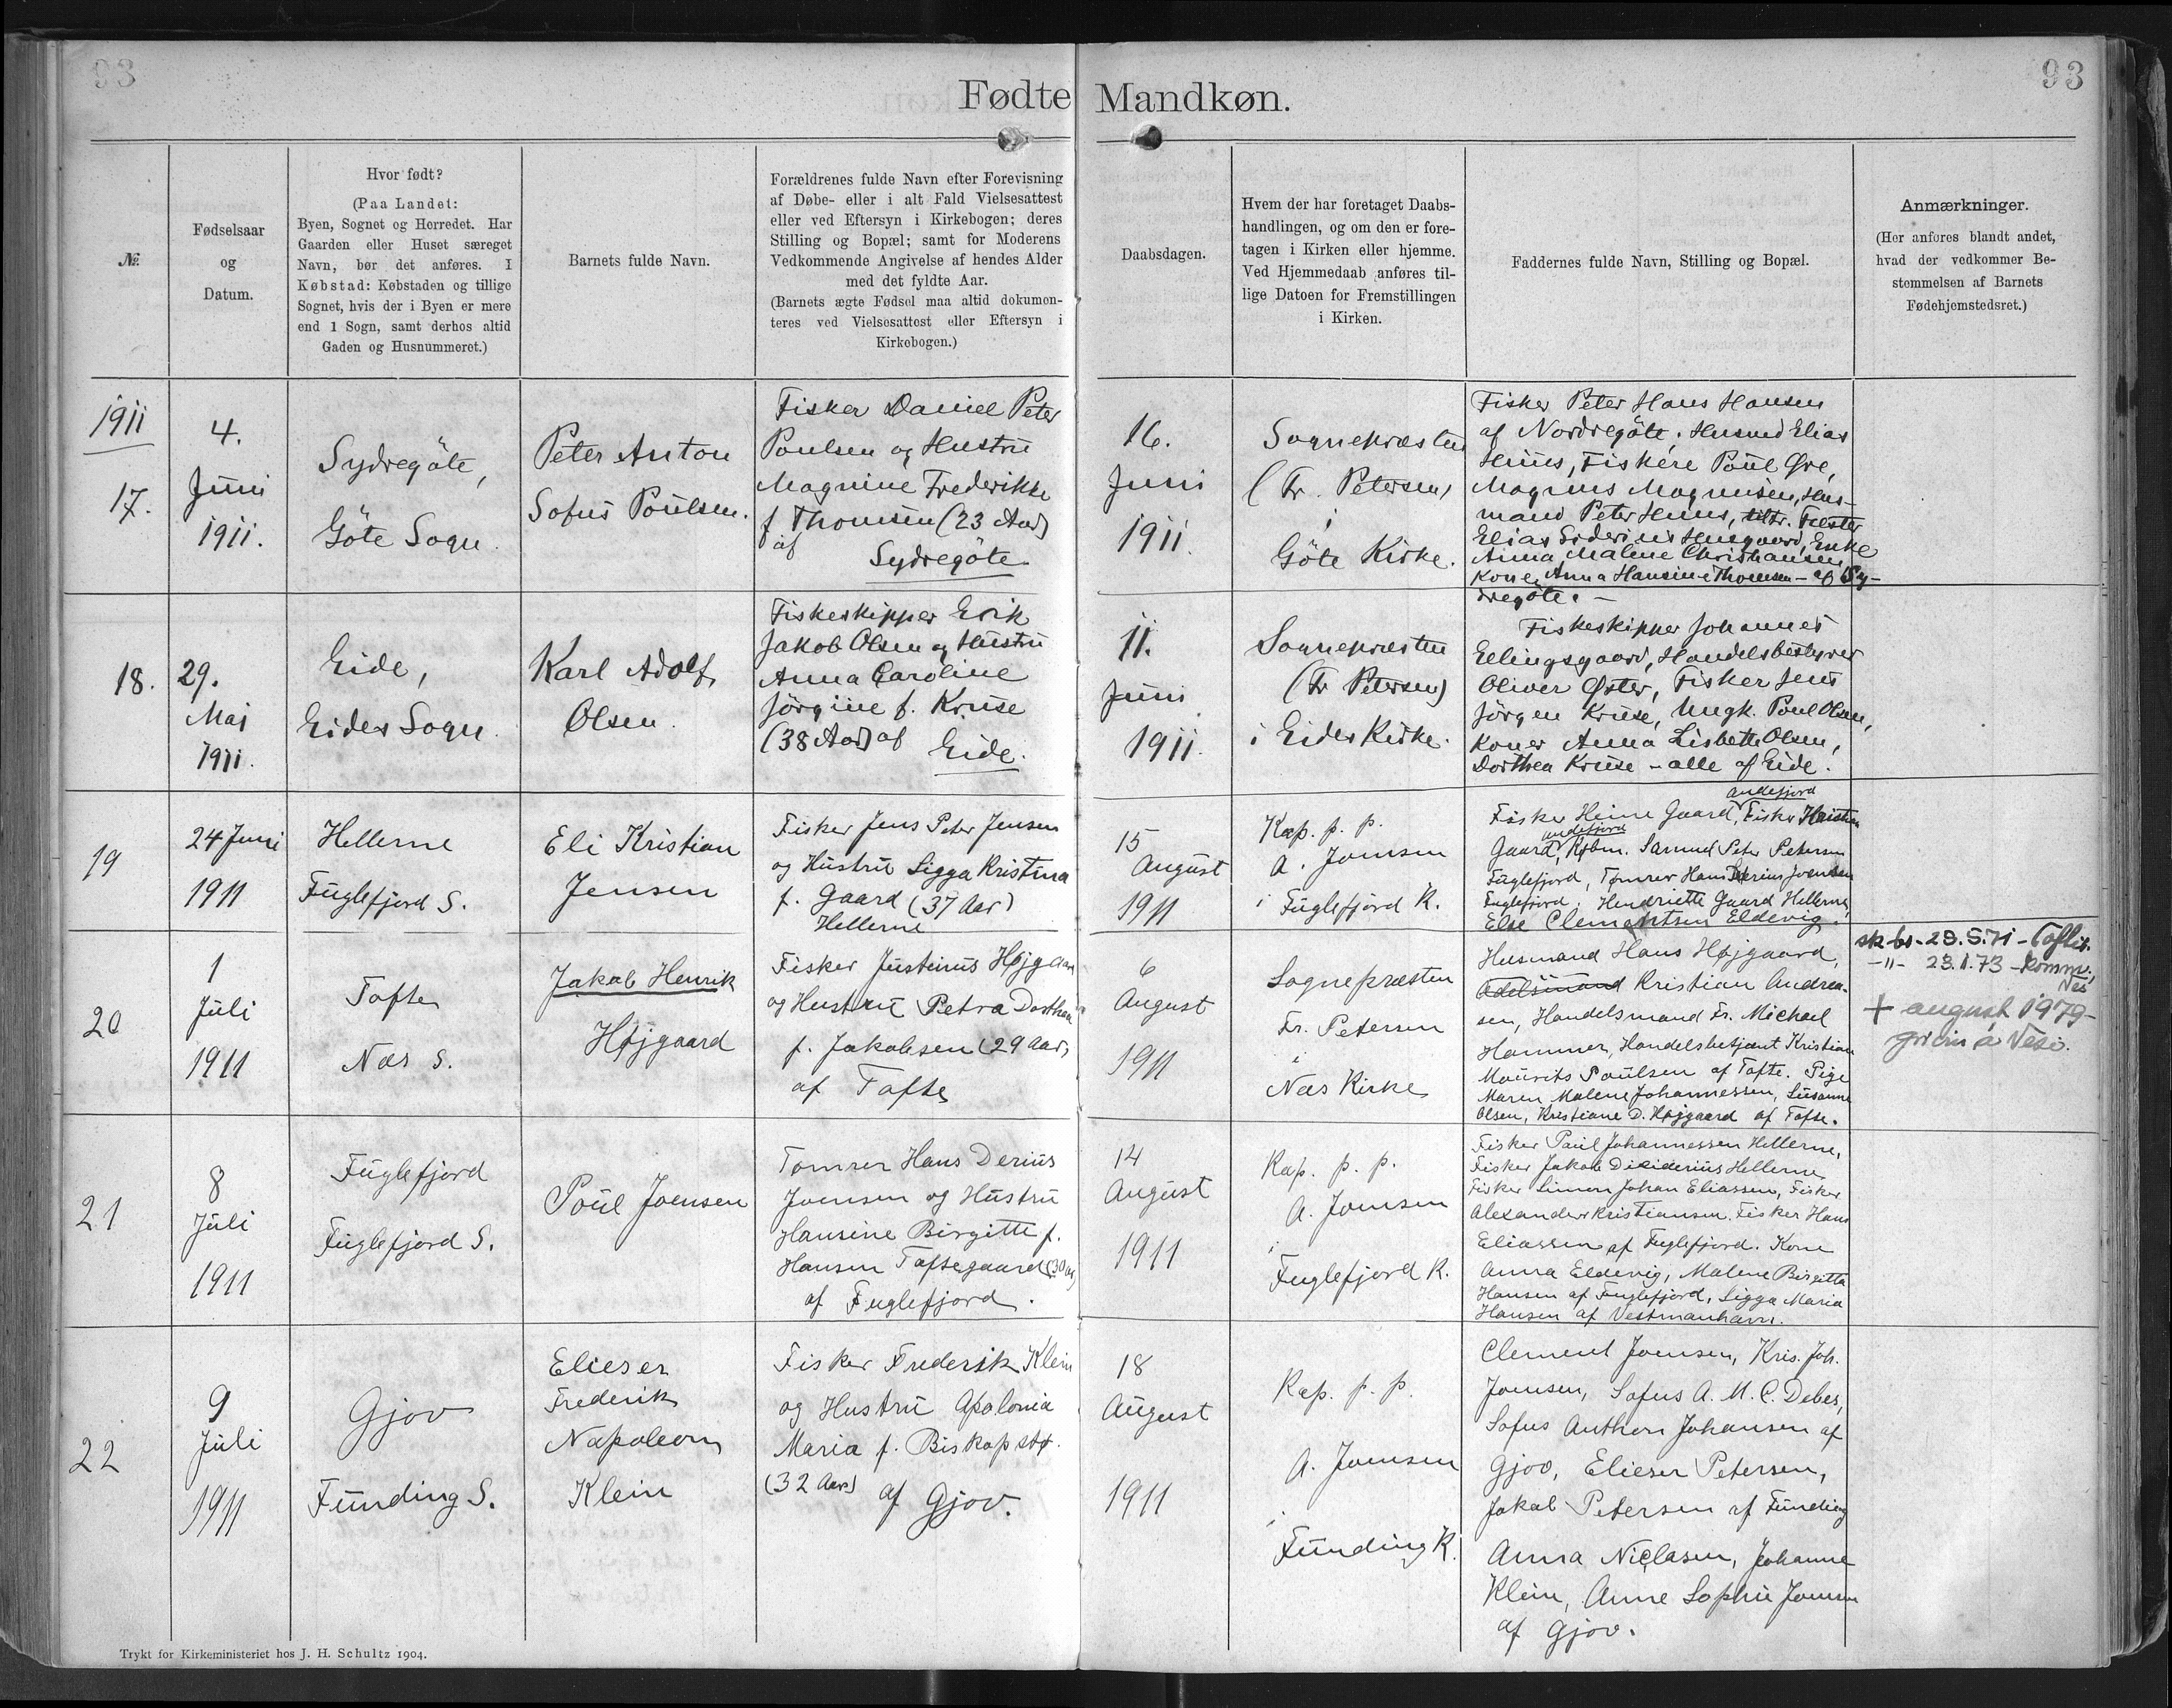 93
Fødte Mandkøn.
93
№
Fødselsaar
og
Datum.
Hvor født?
(Paa Landet:
Byen, Sognet og Herredet. Har
Gaarden eller Huset særeget
Navn, bør det anføres. I
Købstad: Købstaden og tillige
Sognet, hvis der i Byen er mere
end 1 Sogn, samt derhos altid
Gaden og Husnummeret.)
Barnets fulde Navn.
Forældrenes fulde Navn efter Forevisning
af Døbe- eller i alt Fald Vielsesattest
eller ved Eftersyn i Kirkebogen; deres
Stilling og Bopæl; samt for Moderens
Vedkommende Angivelse af hendes Alder
med det fyldte Aar.
(Barnets ægte Fødsel maa altid dokumen-
teres ved Vielsesattest eller Eftersyn i
Kirkebogen.)
Daabsdagen.
Hvem der har foretaget Daabs-
handlingen, og om den er fore-
tagen i Kirken eller hjemme.
Ved Hjemmedaab anføres til-
lige Datoen for Fremstillingen
i Kirken.
Faddernes fulde Navn, Stilling og Bopæl.
Anmærkninger.
(Her anføres blandt andet,
hvad der vedkommer Be-
stemmelsen af Barnets
Fødehjemstedsret.)
1911
17.
4.
Juni
1911.
Sydregöte,
Göte Sogn.
Peter Anton
Sofus Poulsen.
Fisker Daniel Peter
Poulsen og Hustru
Magnine Frederikke
f Thomsen (23 Aar)
af
Sydregöte
16.
Juni
1911.
Sognepræsten
(Fr. Petersen)
i
Göte Kirke.
Fisker Peter Hans Hansen
af Nordregöte, Husmd Elias
Huus, Fiskere Poul Øre,
Magnus Magnusen, Hus-
mand Peter Huus,
Elias Siderius Husgaard, Enke
Anna Malene Christiansen
Kone Anna Hansine Thomsen - af Sy-
dregöte. -
18.
29.
Maj
1911.
Eide,
Eides Sogn.
Karl Adolf
Olsen.
Fiskeskipper Erik
Jakob Olsen og Hustru
Anna Caroline
Jörgine f. Kruse
(38 Aar) af
Eide.
11.
Juni
1911.
Sognepræsten
(Fr Petersen)
i Eides Kirke.
Fiskeskipper Johannes
Ellingsgaard, Handelsbestyrer
Oliver Øster, Fisker Jens
Jörgen Kruse, Ungk. Poul Olsen,
Koner Anna Lisbeth Olsen,
Dorthea Kruse - alle af Eide.
19
24 Juni
1911
Hellerne
Fuglefjord S.
Eli Kristian
Jensen
Fisker Jens Peter Jensen
og Hustru Sigga Kristina
f. Gaard (37 Aar)
Hellerne
15
August
1911
Kap. p. p.
A. Joensen
i Fuglefjord K.
Andefjord
Fisker Heine Gaard, Fisker
Andefjord
Gaard, Kjbm. Samuel Peter Petersen
Fuglefjord, Tømrer Hans Derius Joensen
Fuglefjord. Henriette Gaard Hellerne,
Else Clementsen Eldevig.
20
1
Juli
1911
Tofte
Næs S.
Jakob Henrik
Højgaard
Fisker Justinus Højgaard
og Hustru Petra Dorthea
f. Jakobsen (29 Aar)
af Tofte
6
August
1911
Sognepræsten
Fr. Petersen
i
Næs Kirke
Husmand Hans Højgaard,
Odelsmand Kristian Andrea-
sen, Handelsmand Fr. Michael
Hammer, Handelsbetjent Kristian
Mourits Poulsen af Tofte. Pige
Maren Malene Johannessen, Susanne
Olsen, Kristiane D. Højgaard af Tofte.
sk-br- 28.5.71 - Toftir.
-"- 23.1.73 - komm.
Nes
+ august 1979-
grivin á Nesi.
21
8
Juli
1911
Fuglefjord
Fuglefjord S.
Poul Joensen
Tømrer Hans Derius
Joensen og Hustru
Hansine Birgitte f.
Hansen Toftegaard (30 Aar)
af Fuglefjord.
14
August
1911
Kap. p. p.
A. Joensen
i
Fuglefjord K.
Fisker Paul Johannessen Hellerne,
Fisker Jakob Disiderius Hellerne
Fisker Simon Johan Eliassen, Fisker
Alexander Kristiansen. Fisker Hans
Eliassen af Fuglefjord. Kone
Anna Eldevig, Malene Birgitta
Hansen af Fuglefjord, Sigga Maria
Hansen af Vestmanhavn.
22
9
Juli
1911
Gjov
Funding S.
Elieser
Frederik
Napoleon
Klein
Fisker Frederik Klein
og Hustru Apolonia
Maria f. Biskopstø.
(32 Aar) af Gjov.
18
August
1911
Kap. p. p.
A. Joensen
i
Funding K.
Clement Joensen, Kris. Joh.
Joensen, Sofus A. M. C. Debes,
Sofus Anthon Johansen af
Gjov, Elieser Petersen,
Jakob Petersen af Funding
Anna Niclasen, Johanne
Klein, Anne Sophie Joensen
af Gjov.
Trykt for Kirkeministeriet hos J. H. Schultz 1904.